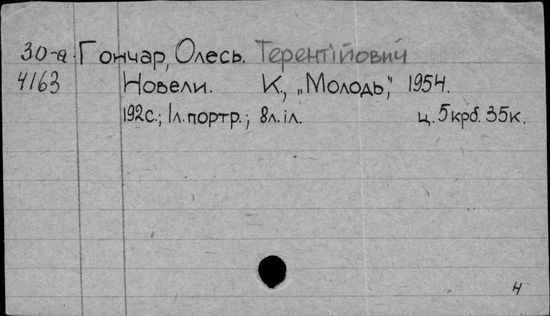 30-а. Гончар, Олесь. Терентійович
4163 Новели. К., „Молодь," 1954.
192с.; 1л.портр.; 8л.іл. ц. 5крб. 35к.
4